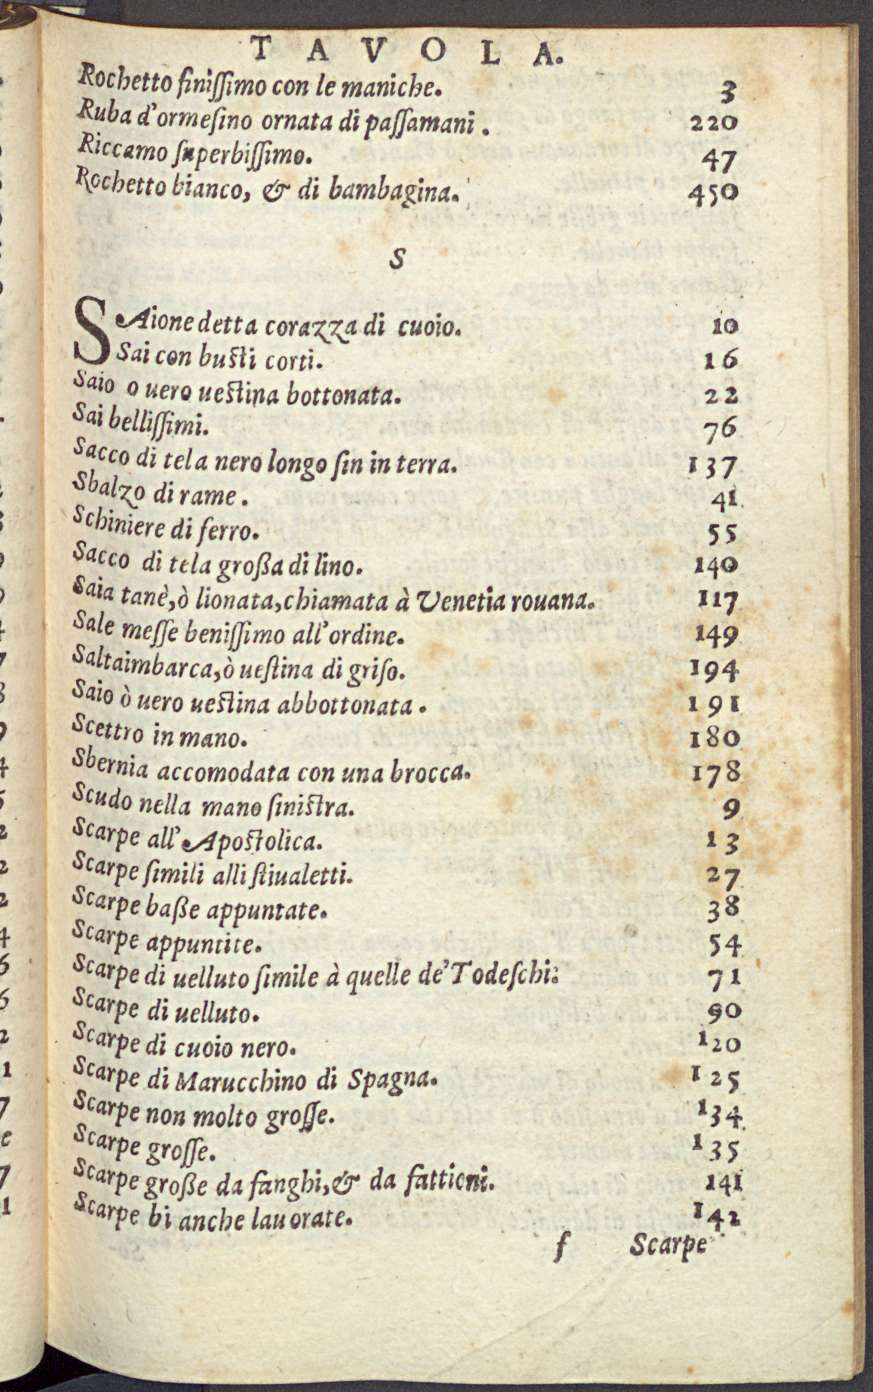 TAVOLA.
Rochetto finissimo con le maniche. 3
Ruba d'ormesino ornata di passamani. 220
Riccamo superbissimo. 47
Rochetto bianco, & di bambagina. 450
S
SAione detta corazza di cuoio. 10
Sai con busti corti. 16
Saio o uero uestina bottonata. 22
Sai bellissimi. 76
Sacco di tela nero longo sin in terra. 137
Sbalzo di rame. 41
Schiniere di ferro. 55
Sacco di tela großa di lino. 140
Saia tanè, ò lionata, chiamata à Venetia rouana. 117
Sale messe benissimo all'ordine. 149
Saltaimbarca, ò uestina di griso. 194
Saio ò uero uestina abbottonata. 191
Scettro in mano. 180
Sbernia accomodata con una brocca. 178
Scudo nella mano sinistra. 9
Scarpe all'Apostolica. 13
Scarpe simili alli stiualetti. 27
Scarpe baße appuntate. 38
Scarpe appuntite. 54
Scarpe di uelluto simile à quelle de'Todeschi: 71
Scarpe di uelluto. 90
Scarpe di cuoio nero. 120
Scarpe di Marucchino di Spagna. 125
Scarpe non molto grosse. 134
Scarpe grosse. 135
Scarpe große da fanghi, & da fattioni. 141
Scarpe bianche lauorate. 142
f Scarpe